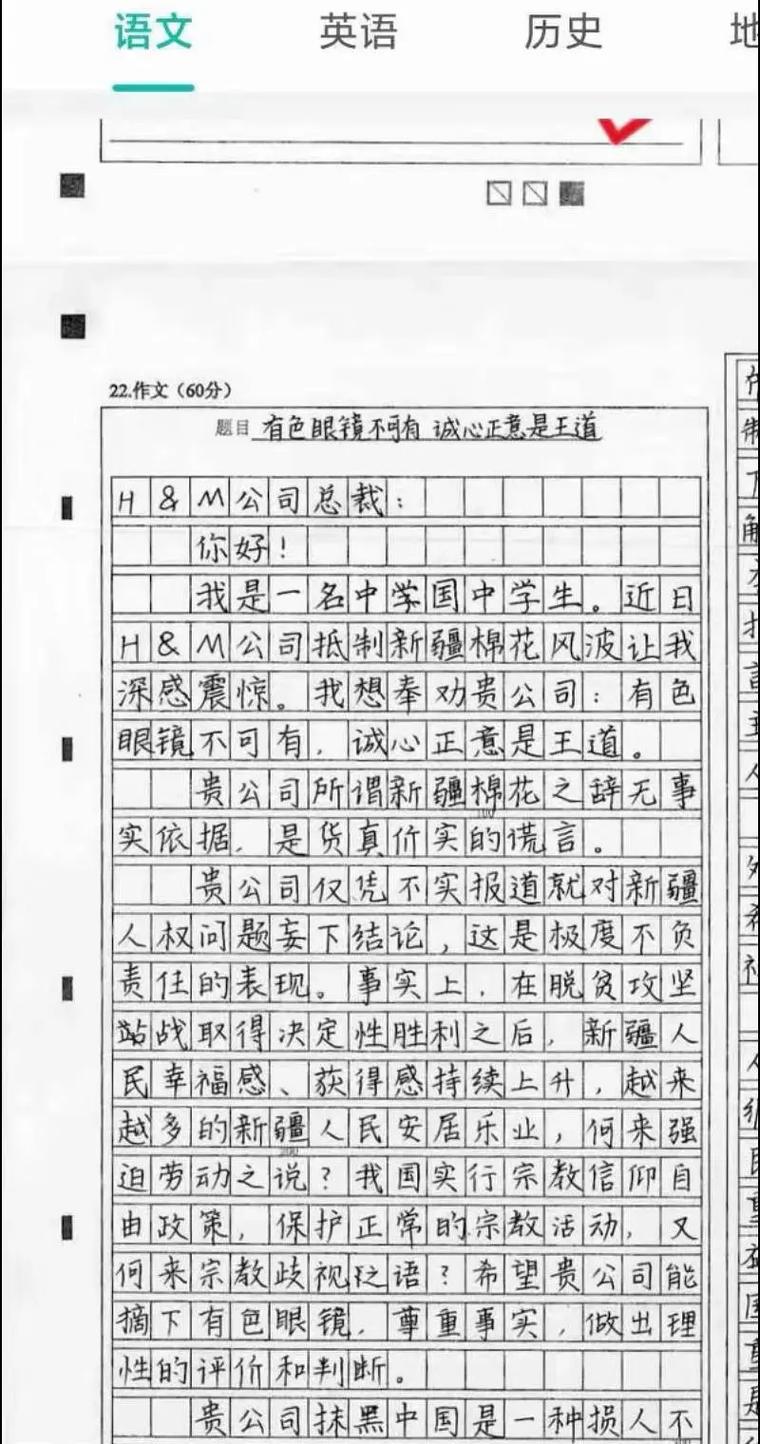 语文 英语 历史 地
22.作文（60分）
题目 有色眼镜不可有 诚心正意是王道
H&M公司总裁：
你好！
我是一名中学国中学生。近日
H&M公司抵制新疆棉花风波让我
深感震惊。我想奉劝贵公司：有色
眼镜不可有，诚心正意是王道。
贵公司所谓新疆棉花之辞无事
实依据，是货真价实的谎言。
贵公司仅凭不实报道就对新疆
人权问题妄下结论，这是极度不负
责任的表现。事实上，在脱贫攻坚
站战取得决定性胜利之后，新疆人
民幸福感、获得感持续上升，越来
越多的新疆人民安居乐业，何来强
迫劳动之说？我国实行宗教信仰自
由政策，保护正常的宗教活动，又
何来宗教歧视之语？希望贵公司能
摘下有色眼镜，尊重事实，做出理
性的评价和判断。
贵公司抹黑中国是一种损人不